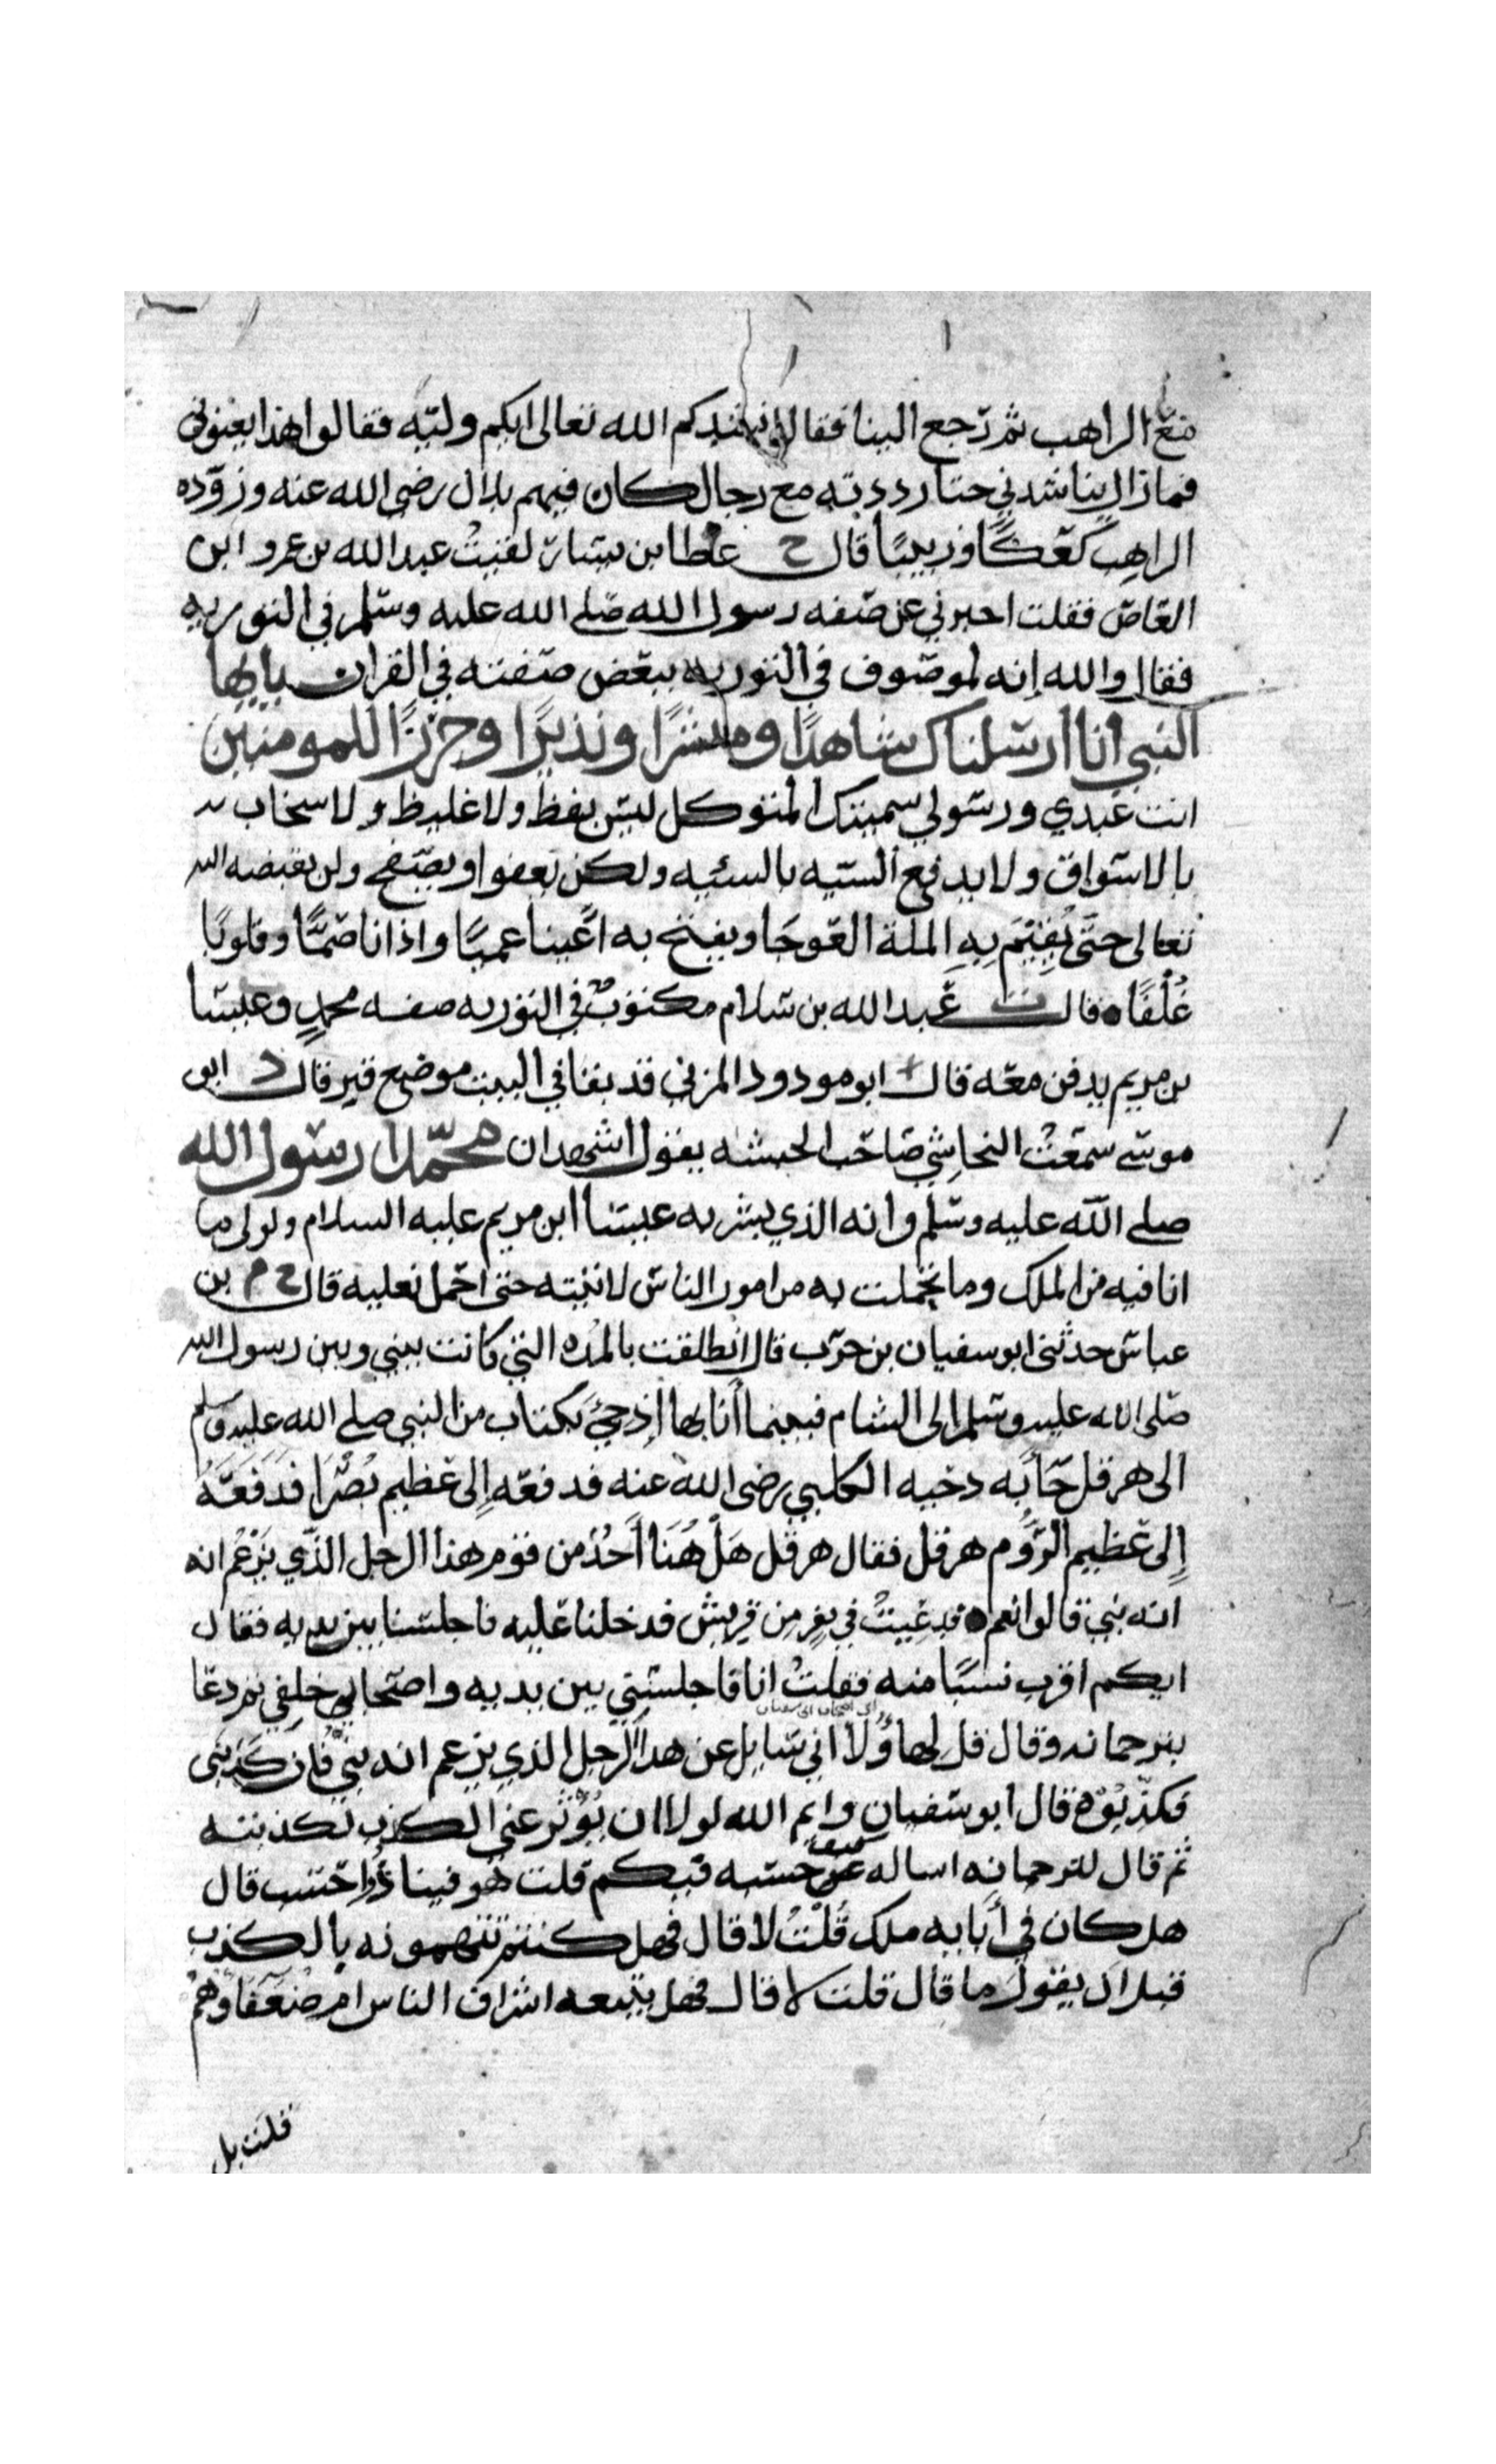 مع الراهب ثم رجع الينا فقال انشدكم الله تعالى ايكم وليه فقالوا هذا يعنوني
فما زال يناشدني حتا رددته مع رجال كان فيهم بلال رضى الله عنه وزوده
الراهب كعكًا وزيتًا قال خ عطا بن يسار لقيتُ عبد الله بن عمرو ابن
العاص فقلت اخبرني عن صفه رسول الله صلى الله عليه وسلم في التوريه
فقال والله إنه لموصوف في التوريه ببعض صفته في القران يا ايها
النبي انا ارسلناك شاهدًا ومبشرًا ونذيرًا وحرزًا للمومنين
انت عبدي ورسولي سميتك المتوكل ليس بفظ ولا غليظ ولا سخاب
بالاسواق ولا يدفع السيه بالسئيه ولكن يعفوا ويصفح ولن يقبضه الله
تعالى حتَّى يُقِيْمَ بِهِ الملة العوجَا ويفتح به اعينا عميًا واذانا صمًّا وقلوبًا
غُلْفًا قال ت عبد الله بن سلام مكتوبٌ في التوريه صفه محمدٍ وعيسا
بن مريم يدفن معه قال ابو مودود المزني قد بقا في البيت موضع قبر قال د ابى
موسى سمعتُ النجاشي صاحب الحبشه يقول اشهد ان محمّدًا رسول الله
صلى الله عليه وسلم وانه الذي بشر به عيسا ابن مريم عليه السلام ولولى ما
انا فيه من الملك وما تحملت به من امور الناس لاتيته حتى احمل نعليه قال خ م بن
عباس حدثنى ابو سفيان بن حرب قال انطلقت بالمده التي كانت بيني وبين رسول الله
صلى الله عليه وسلم الى الشام فبينما أنا بها إذ جئ بكتاب من النبي صلى الله عليه وسلم
الى هرقل جَا بُه دحيه الكلبي رضى الله عنه فدفعه إلى عظيم بُصْرَا فَدَفَعَهُ
إلى عظيم الرُّوم هرقل فقال هرقل هَلْ هُنَا أَحُدٌ من قوم هذا الرجل الذّي يَزْعُم انه
انه نبي قالوا نعم فدعيتُ في نفرٍ مِن قريش فدخلنا عليه فاجلسنا بين يديه فقال
ايكم اقرب نسبًا منه فقلتُ انا فاجلسني بين يديه واصحابي خلفي ثم دعا
بترجمانه وقال قل لهاؤُلا اني سايل عن هذا الرجل الذي يزعم انه نبيٌّ فان كذبنى
فكذّبُوْه قال ابو سفيان وايم الله لولا ان يُؤْثَر عني الكذب لكذبته
ثم قال لترجمانه اساله كيف حسبه فيكم قلت هو فينا ذُوا حسب قال
هل كان في أبايه ملك قُلْتُ لا قال فهل كنتم تتهمونه بالكذب
قبل ان يقول ما قال قلت لا قال فهل يتبعه اشراف الناس ام ضعفاؤهُمْ
قلت بل